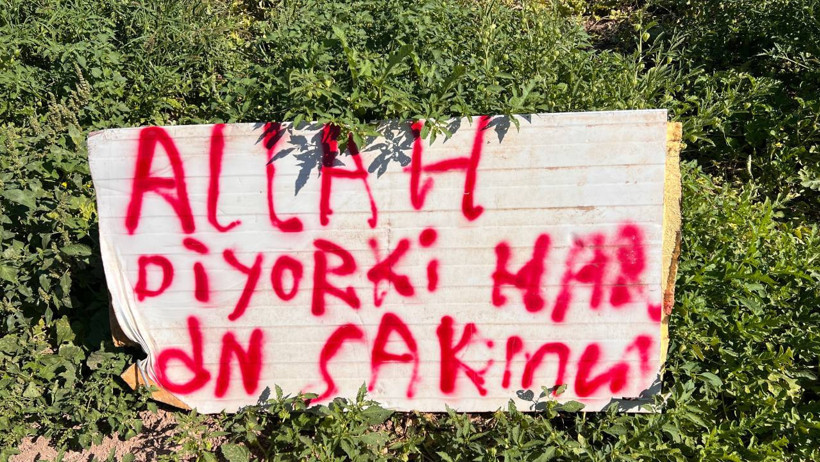 ALLAH
DiYORKi HAR
dN